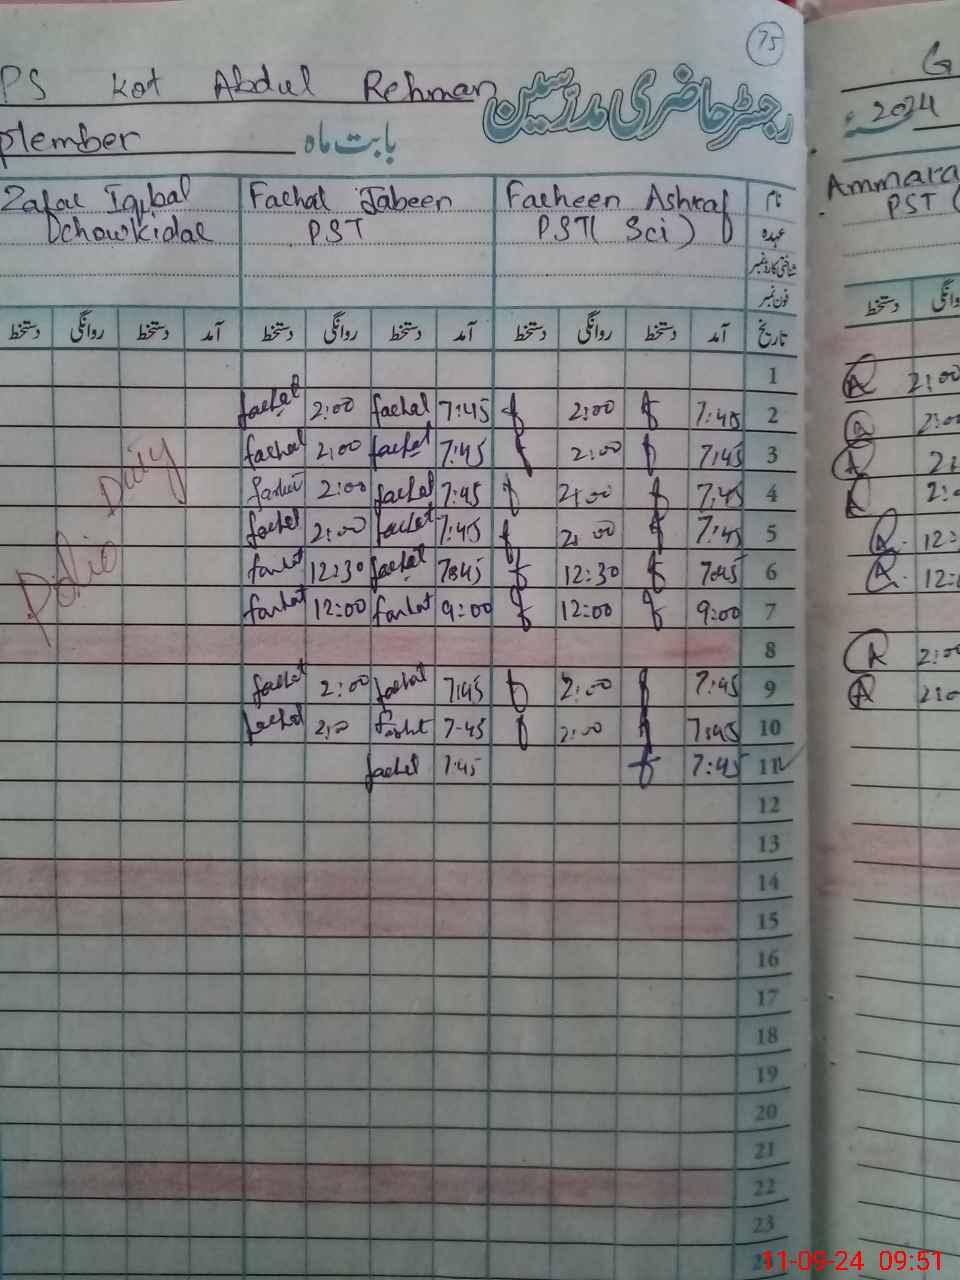 75
PS Kot Abdul Rehman رجسٹر حاضری مدرسین
ptember بابت ماہ
Zafar Iqbal Farhat Jabeen Farheen Ashraf نام
Chowkidar PST PST( Sci ) عہدہ
شناختی کارڈ نمبر
فون نمبر
دستخط روانگی دستخط آمد دستخط روانگی دستخط آمد دستخط روانگی دستخط آمد تاریخ
1
farhat 2:00 farhat 7:45 f 2:00 f 7:45 2
farhat 2:00 farhat 7:45 f 2:00 f 7:45 3
farhat 2:00 farhat 7:45 f 2:00 f 7:45 4
farhat 2:00 farhat 7:45 f 2:00 f 7:45 5
farhat 12:30 farhat 7:45 f 12:30 f 7:45 6
farhat 12:00 farhat 9:00 f 12:00 f 9:00 7
Polio Duty
8
farhat 2:00 farhat 7:45 f 2:00 f 7:45 9
farhat 2:00 farhat 7:45 f 2:00 f 7:45 10
farhat 7:45 f 7:45 11
12
13
14
15
16
17
18
19
20
21
22
23
G
2024
Ammara
PST (
دستخط
A 2:00
a 2:00
A 2:
A 2:
A. 12:
A. 12:
A 2:00
A 2:0
11-09-24 09:51